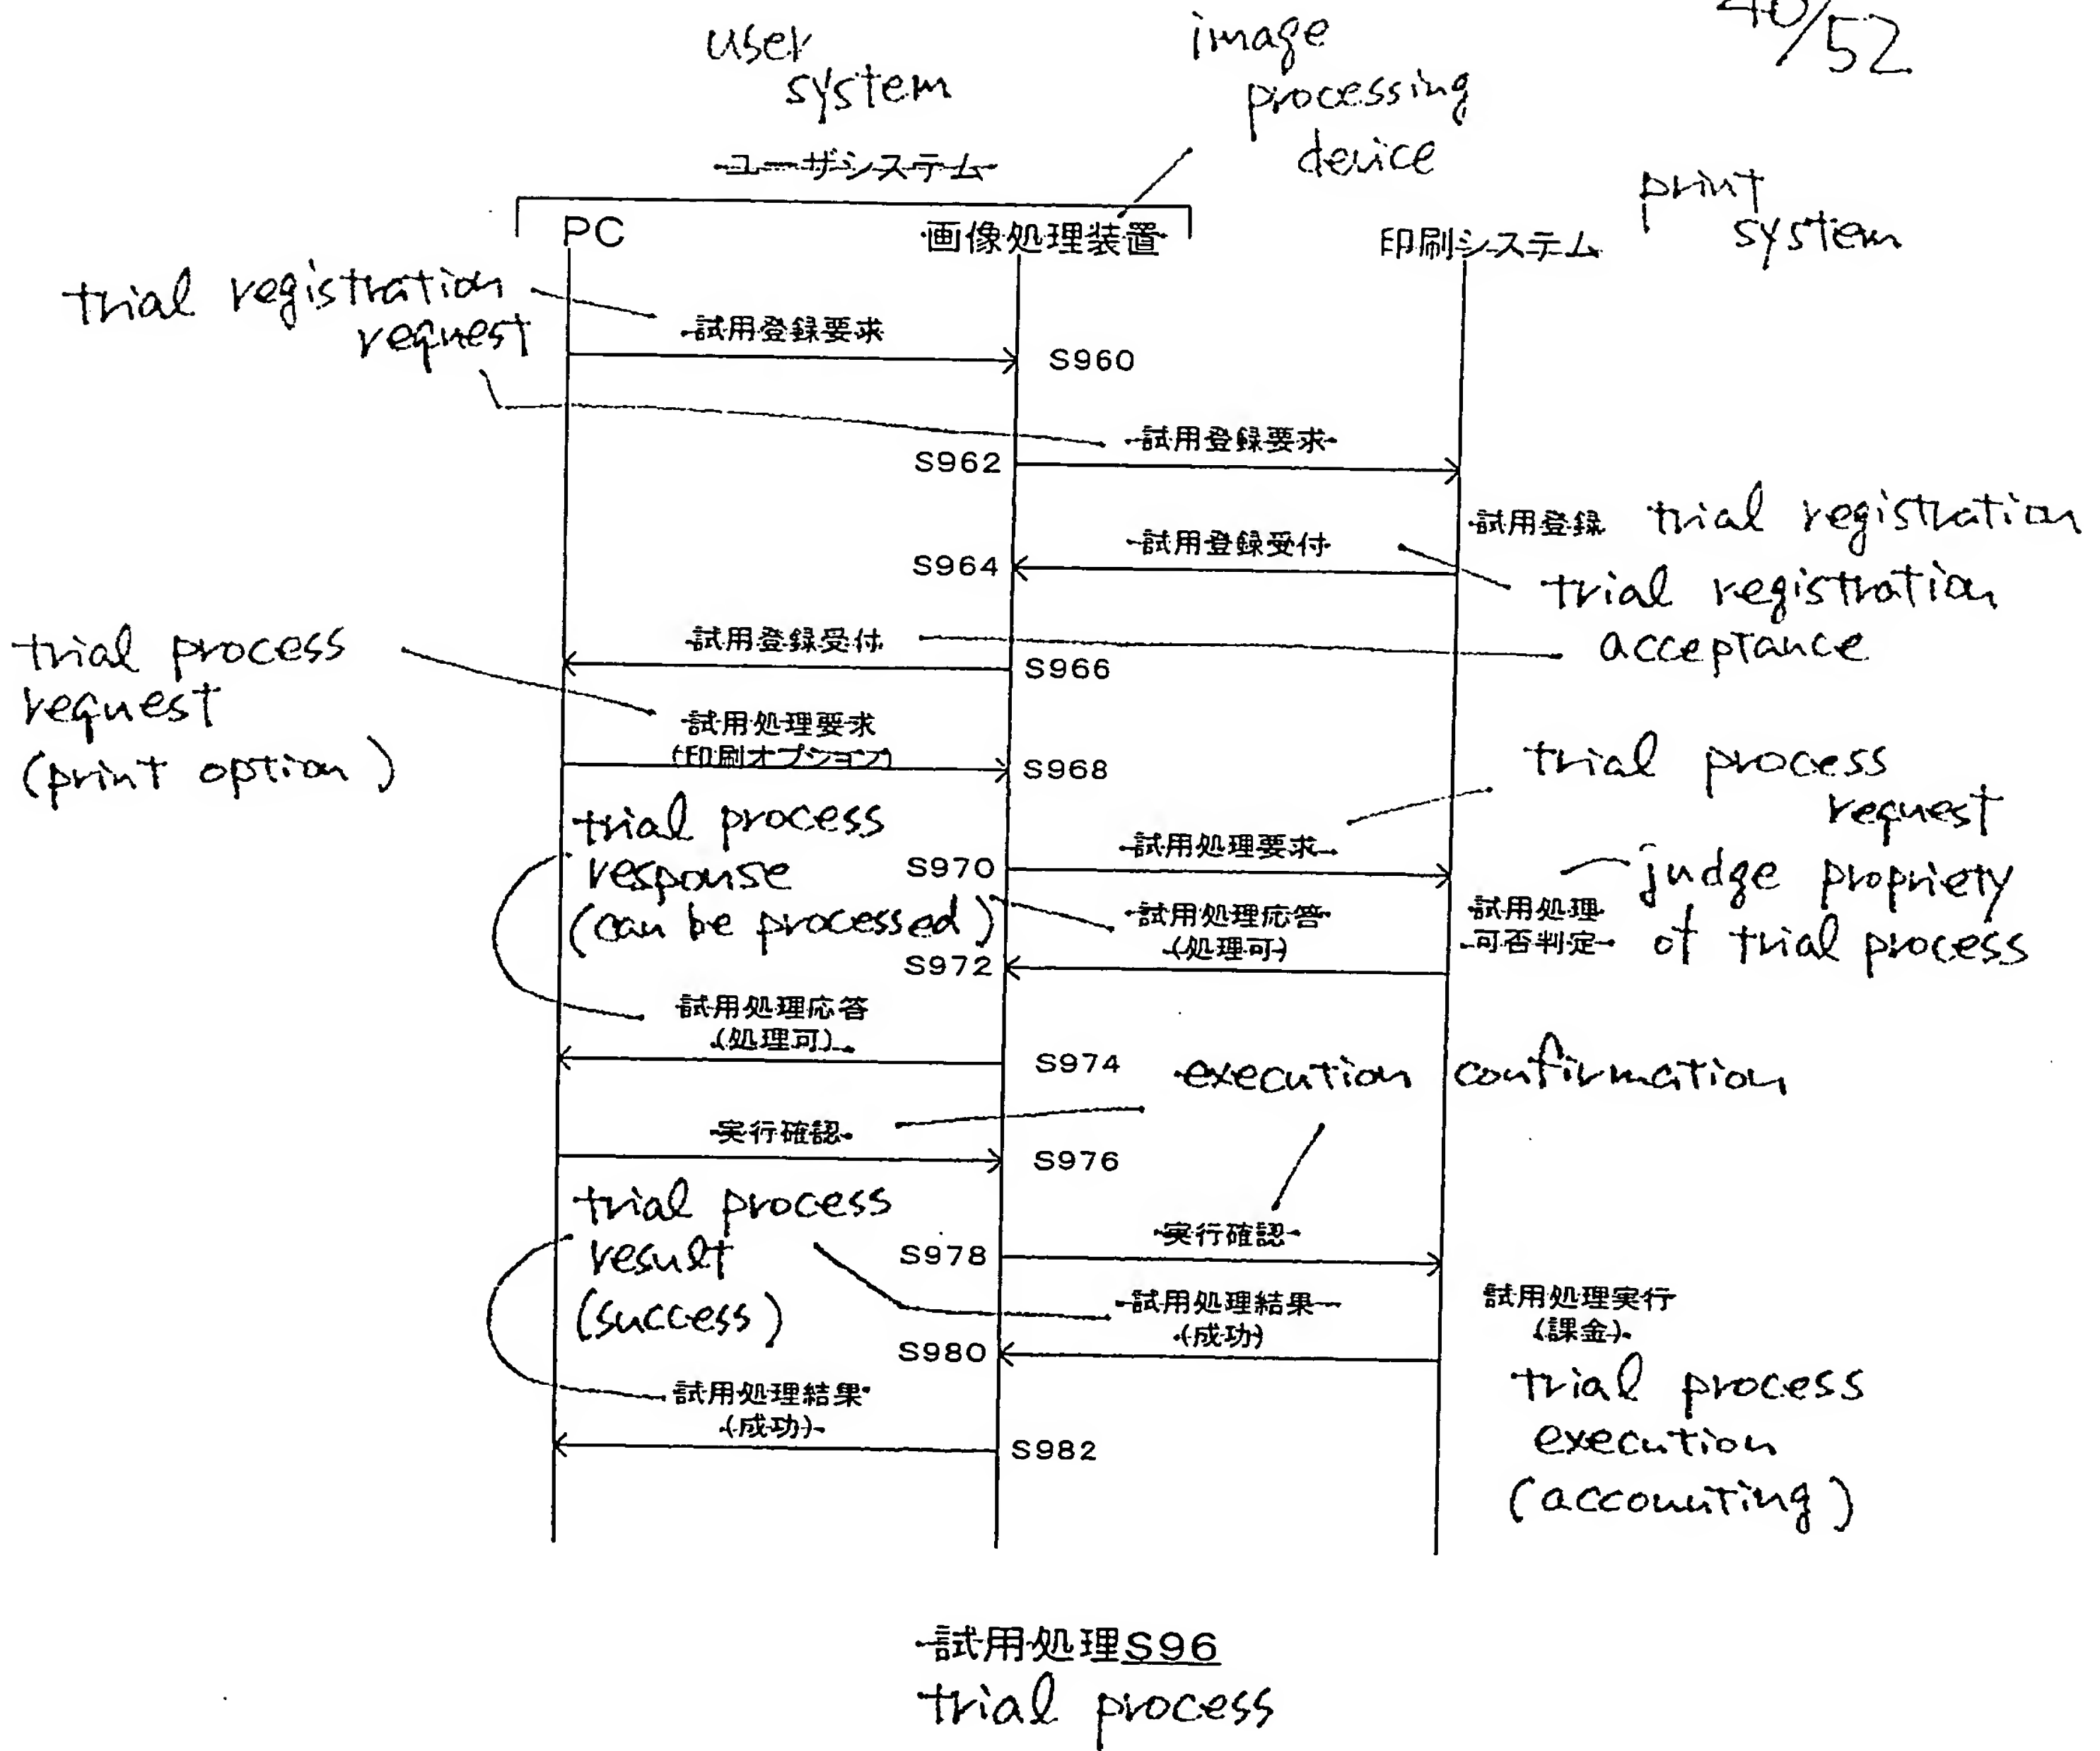 40/52
user
system
image
processing
device
ユーザシステム
print
system
PC
画像処理装置
印刷システム
trial registration
request
試用登録要求
S960
試用登録要求
S962
試用登録
trial registration
試用登録受付
S964
trial registration
acceptance
試用登録受付
S966
trial process
request
(print option)
試用処理要求
(印刷オプション)
S968
trial process
request
trial process
response
(can be processed)
試用処理要求
S970
judge propriety
of trial process
試用処理
可否判定
試用処理応答
(処理可)
S972
試用処理応答
(処理可)
S974
execution confirmation
実行確認
S976
trial process
result
(success)
実行確認
S978
試用処理結果
(成功)
S980
試用処理実行
(課金)
trial process
execution
(accounting)
試用処理結果
(成功)
S982
試用処理S96
trial process